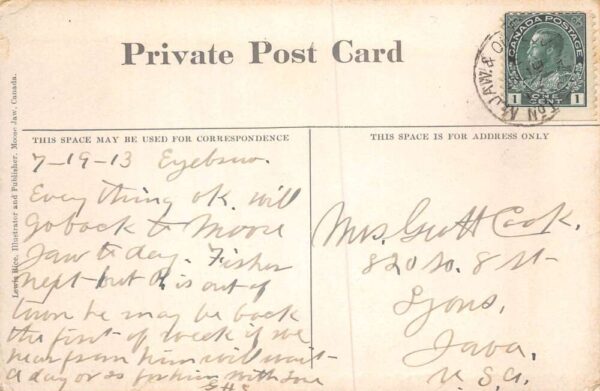 Private Post Card
CANADA POSTAGE
1 ONE CENT 1
M.JAW. &
THIS SPACE MAY BE USED FOR CORRESPONDENCE
THIS SPACE IS FOR ADDRESS ONLY
Lewis Rice, Illustrator and Publisher, Moose Jaw, Canada.
7-19-13 Eyebrow.
Everything ok. will
go back to Moose
Jaw to day. Fisher
next but is out of
town he may be back
the first of week if we
hear from him will wait
a day or so for him with love
Mrs. Scott Cook.
820 So. 8 St-
Lyons,
Iowa,
U.S.A.